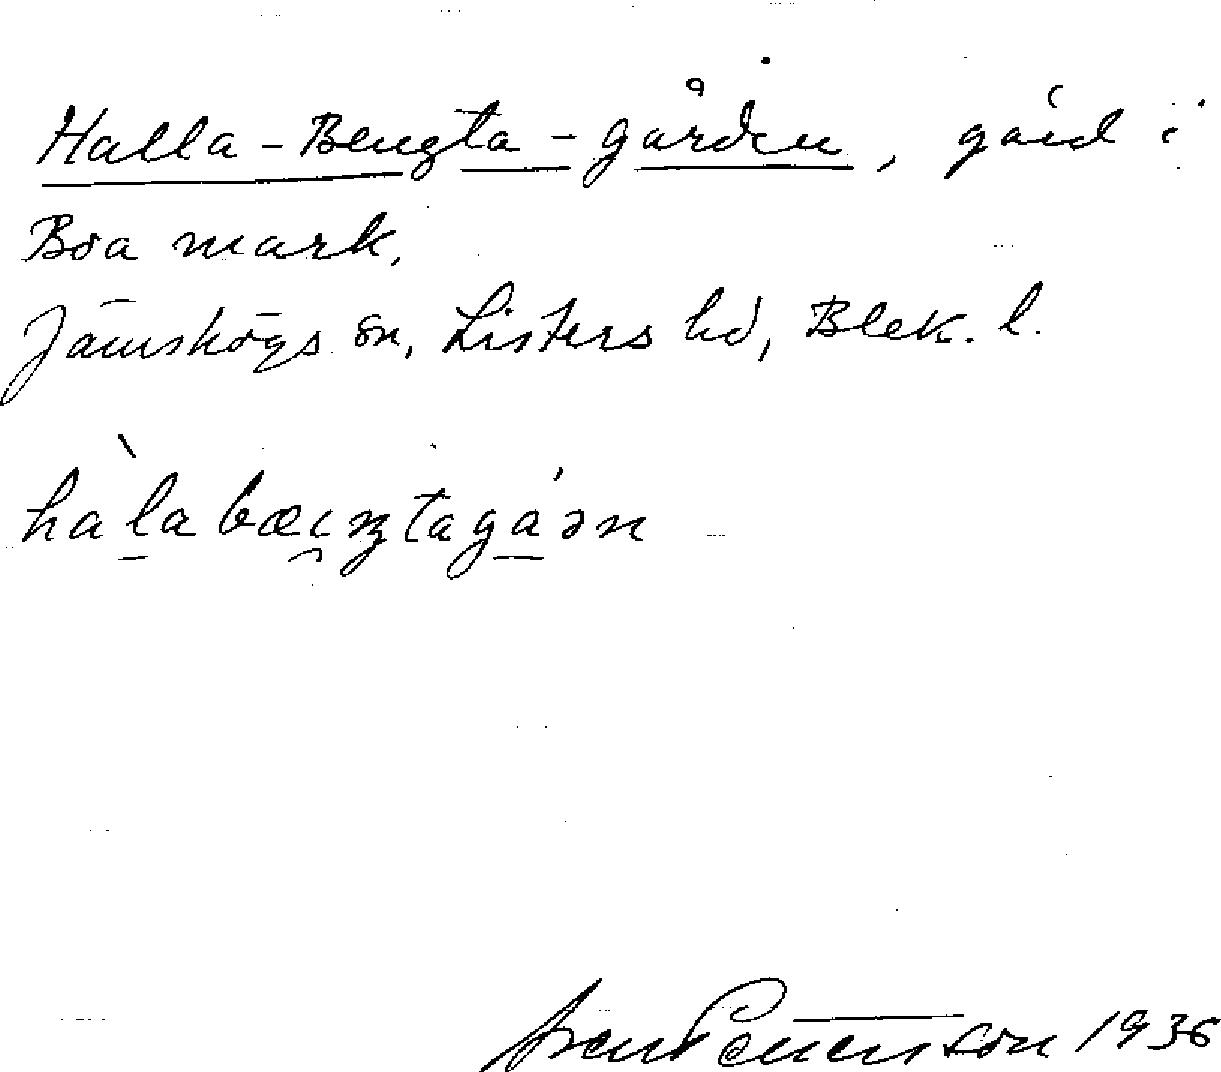 Halla-Bengta-gården, gård i
Boa mark,
Jämshögs sn, Listers hd, Blek. l.
halabæiŋtagáən
1936